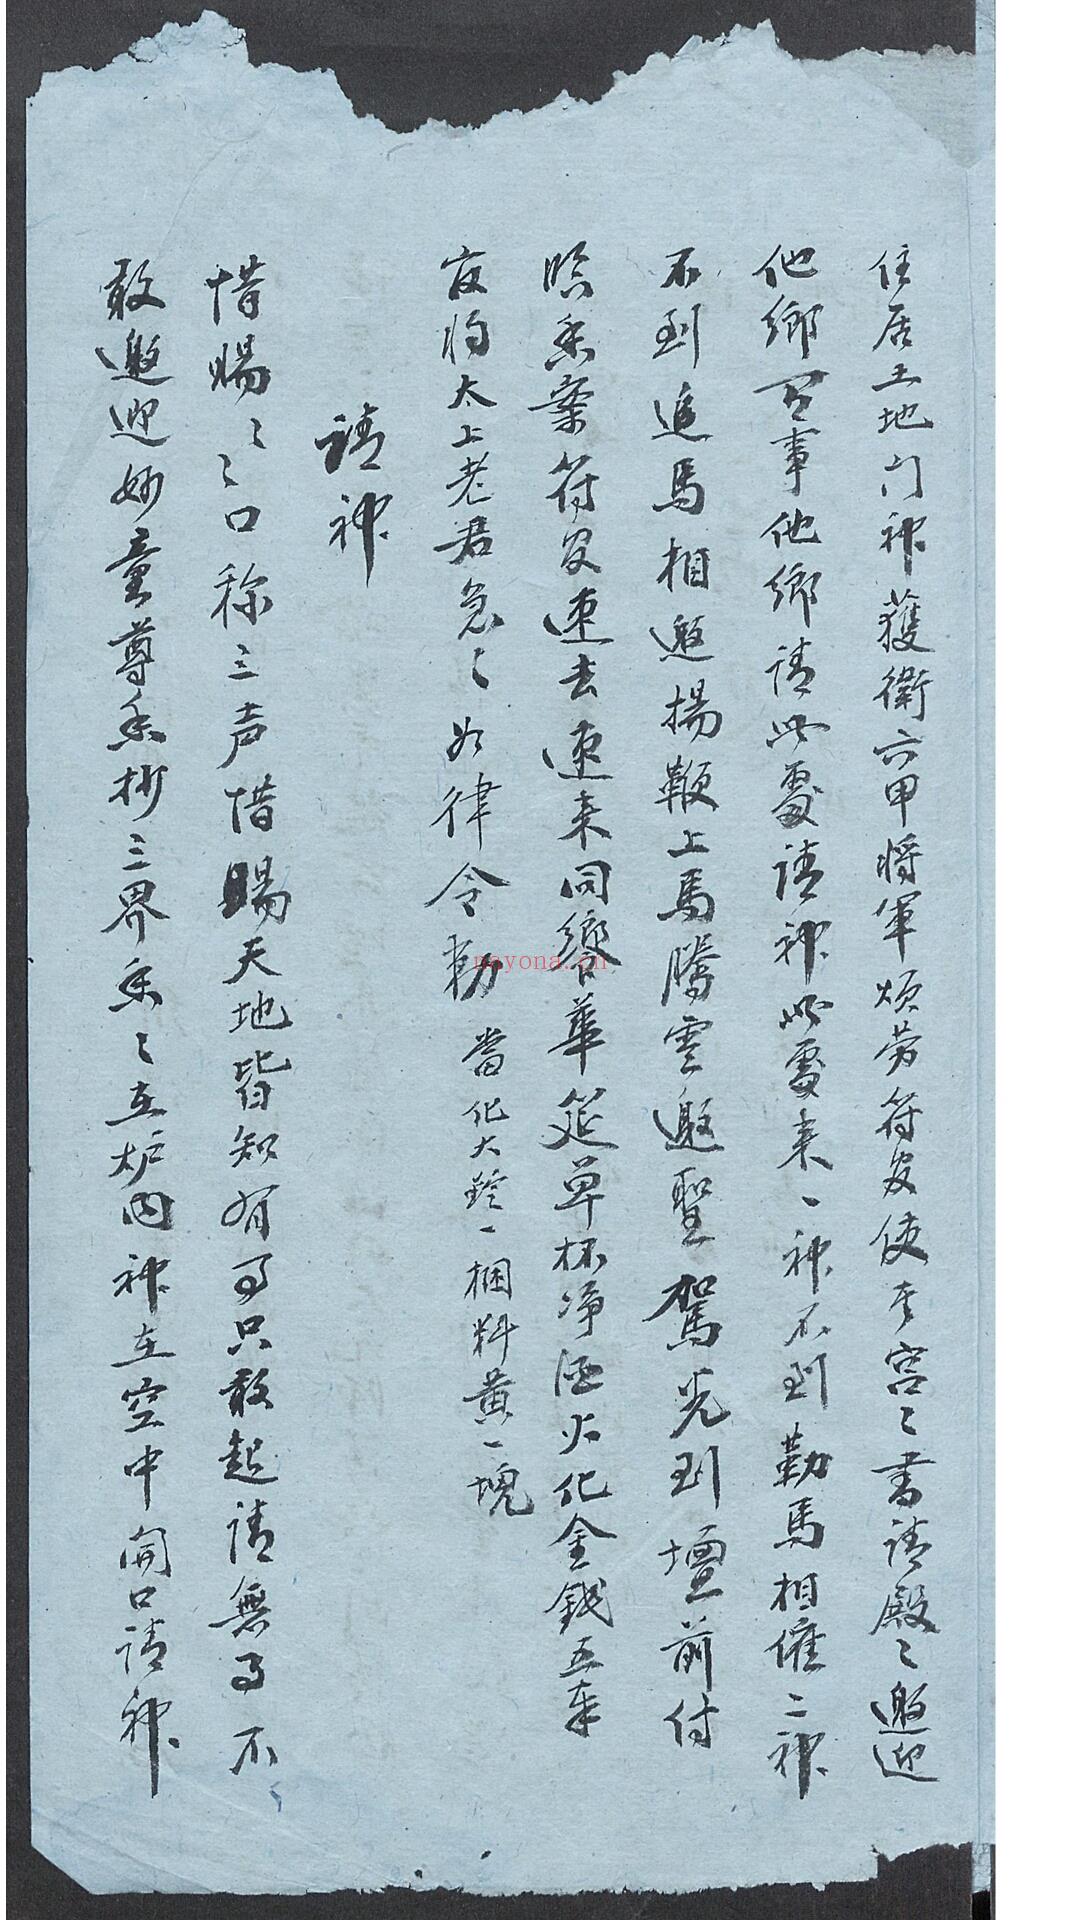 住居土地门神獲衛六甲将軍煩劳符官使者宫〻書請殿〻邀迎
他鄉百事他鄉請此處請神此處来一神不到勒馬相催二神
不到追馬相邀揚鞭上馬騰雲邀聖駕光到壇前付
临香案符官速去速来同饗華筵单杯净酒火化金錢五车
官将太上老君急〻如律令勅 當化大錠一捆料黄一塊
請神
惜賜〻〻口称三声惜賜天地皆知有事只敢起請無事不
敢邀迎妙童尊香抄三界香〻在炉内神在空中開口請神
nayona.cn